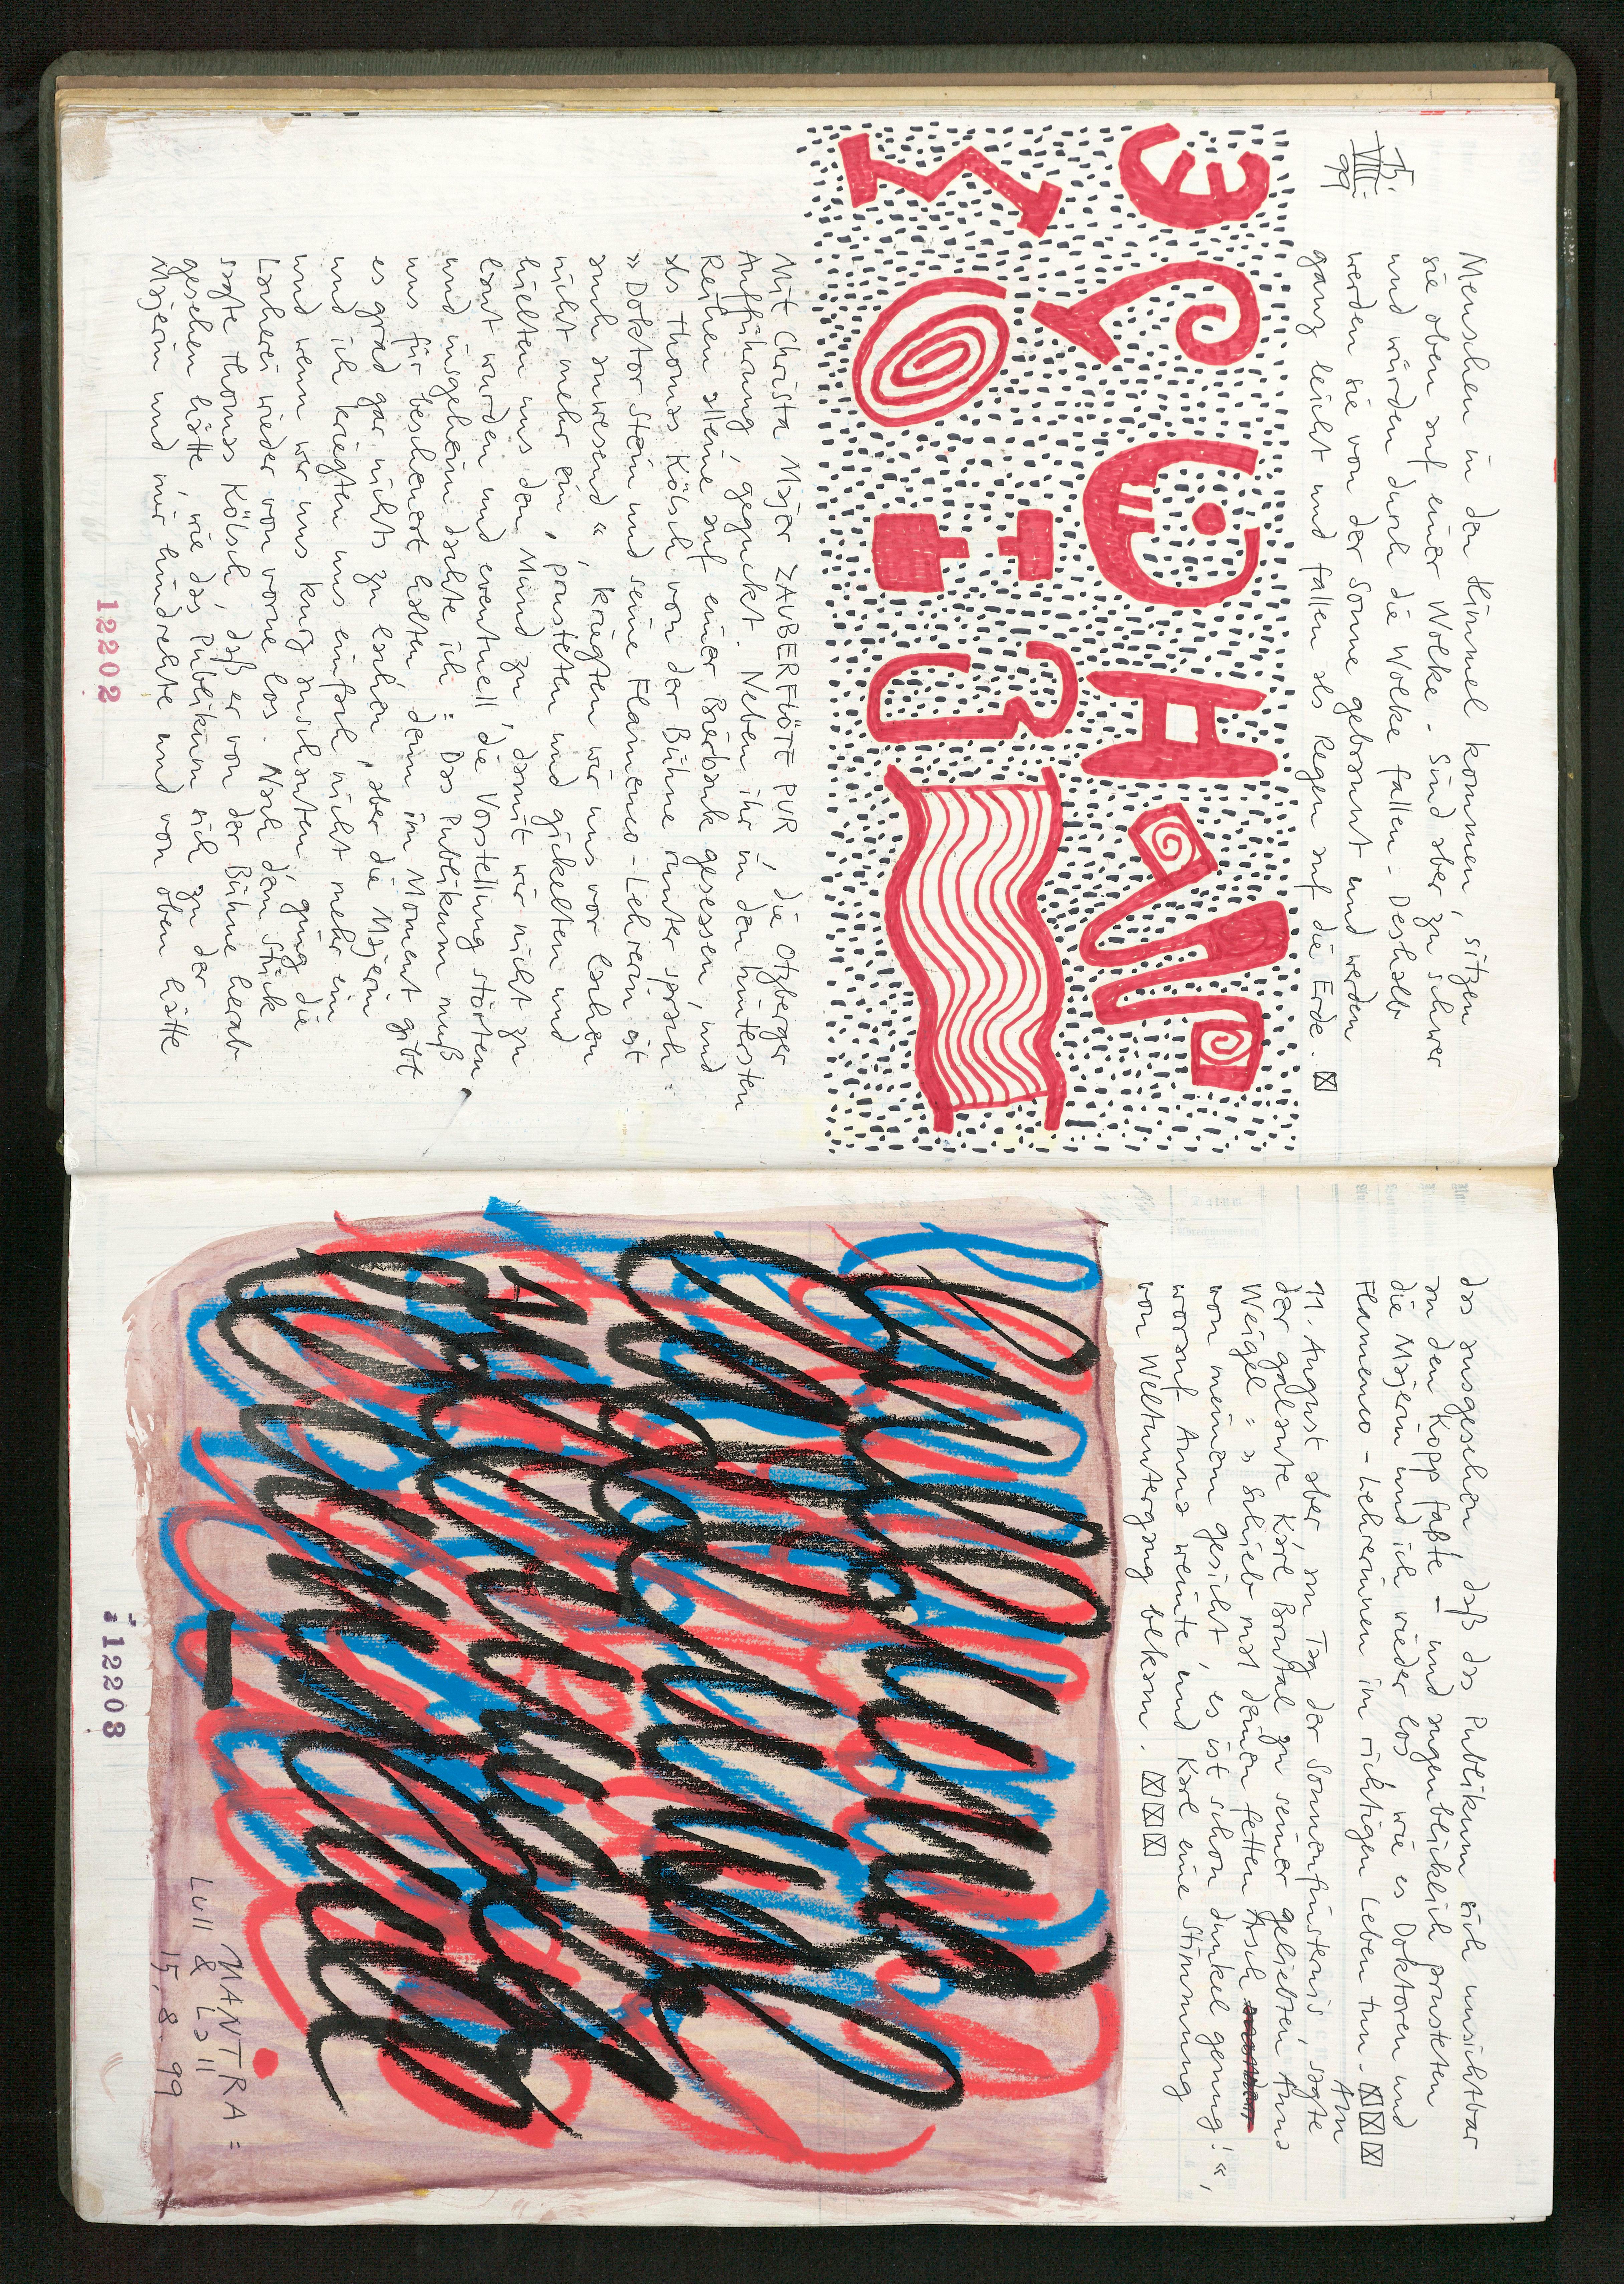 15.
VIII.
99
Menschen in den Himmel kommen, sitzen
sie oben auf einer Wolke. Sind aber zu schwer
und würden durch die Wolke fallen. Deshalb
werden sie von der Sonne gebrannt und werden
ganz leicht und fallen als Regen auf die Erde. ☒
Mit Christa Majer ZAUBERFLÖTE PUR, die Otzberger
Aufführung, geguckt. Neben ihr in den hintersten
Reihen alleine auf einer Bierbank gesessen, und
als Thomas Kölsch von der Bühne runter sprach:
»Doktor Stein und seine Flamenco-Lehrerin ist
auch anwesend«, kriegten wir uns vor Lachen
nicht mehr ein, prusteten und gickelten und
hielten uns den Mund zu, damit wir nicht zu
laut wurden und eventuell die Vorstellung störten.
und insgeheim dachte ich: Das Publikum muß
uns für bescheuert halten, denn im Moment gibt
es grad gar nichts zu lachen, aber die Majerin
und ich kriegten uns einfach nicht mehr ein
und wenn wir uns kurz anschauten, ging die
Lacherei wieder von vorne los. Nach dem Stück
sagte Thomas Kölsch, daß er von der Bühne herab
gesehen hätte, wie das Publikum sich zu der
Majerin und mir hindrehte und von oben hätte
12202
das ausgesehen, daß das Publikum sich unsichtbar
an den Kopp faßte – und augenblicklich prusteten
die Majerin und ich wieder los, wie es Doktoren und
Flammenco-Lehrerinnen im richtigen Leben tun. ☒☒☒
Am
11. August aber, am Tag der Sonnenfinsternis, sagte
der galante Karl Brutal zu seiner geliebten Anna
Weigel: »Schieb mal deinen fetten Arsch
von meinem Gesicht, es ist schon dunkel genug!«,
worauf Anna weinte und Karl eine Stimmung
von Weltuntergang bekam. ☒☒☒
MANTRA =
Lull & Lall
15.8.99
12203